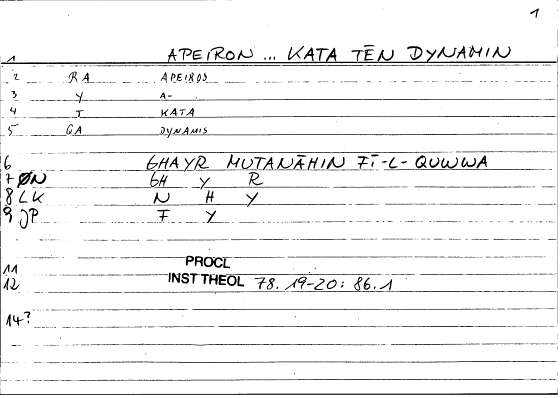 1
1 APEIRON ... KATA TĒN DYNAMIN
2 RA APEIROS
3 Y A-
4 I KATA
5 GA DYNAMIS
6 GHAYR MUTANĀHIN FĪ-L-QUWWA
7 ØN GH Y R
8 LK N H Y
9 JP F Y
11 PROCL
12 INST THEOL 78.19-20: 86.1
14?